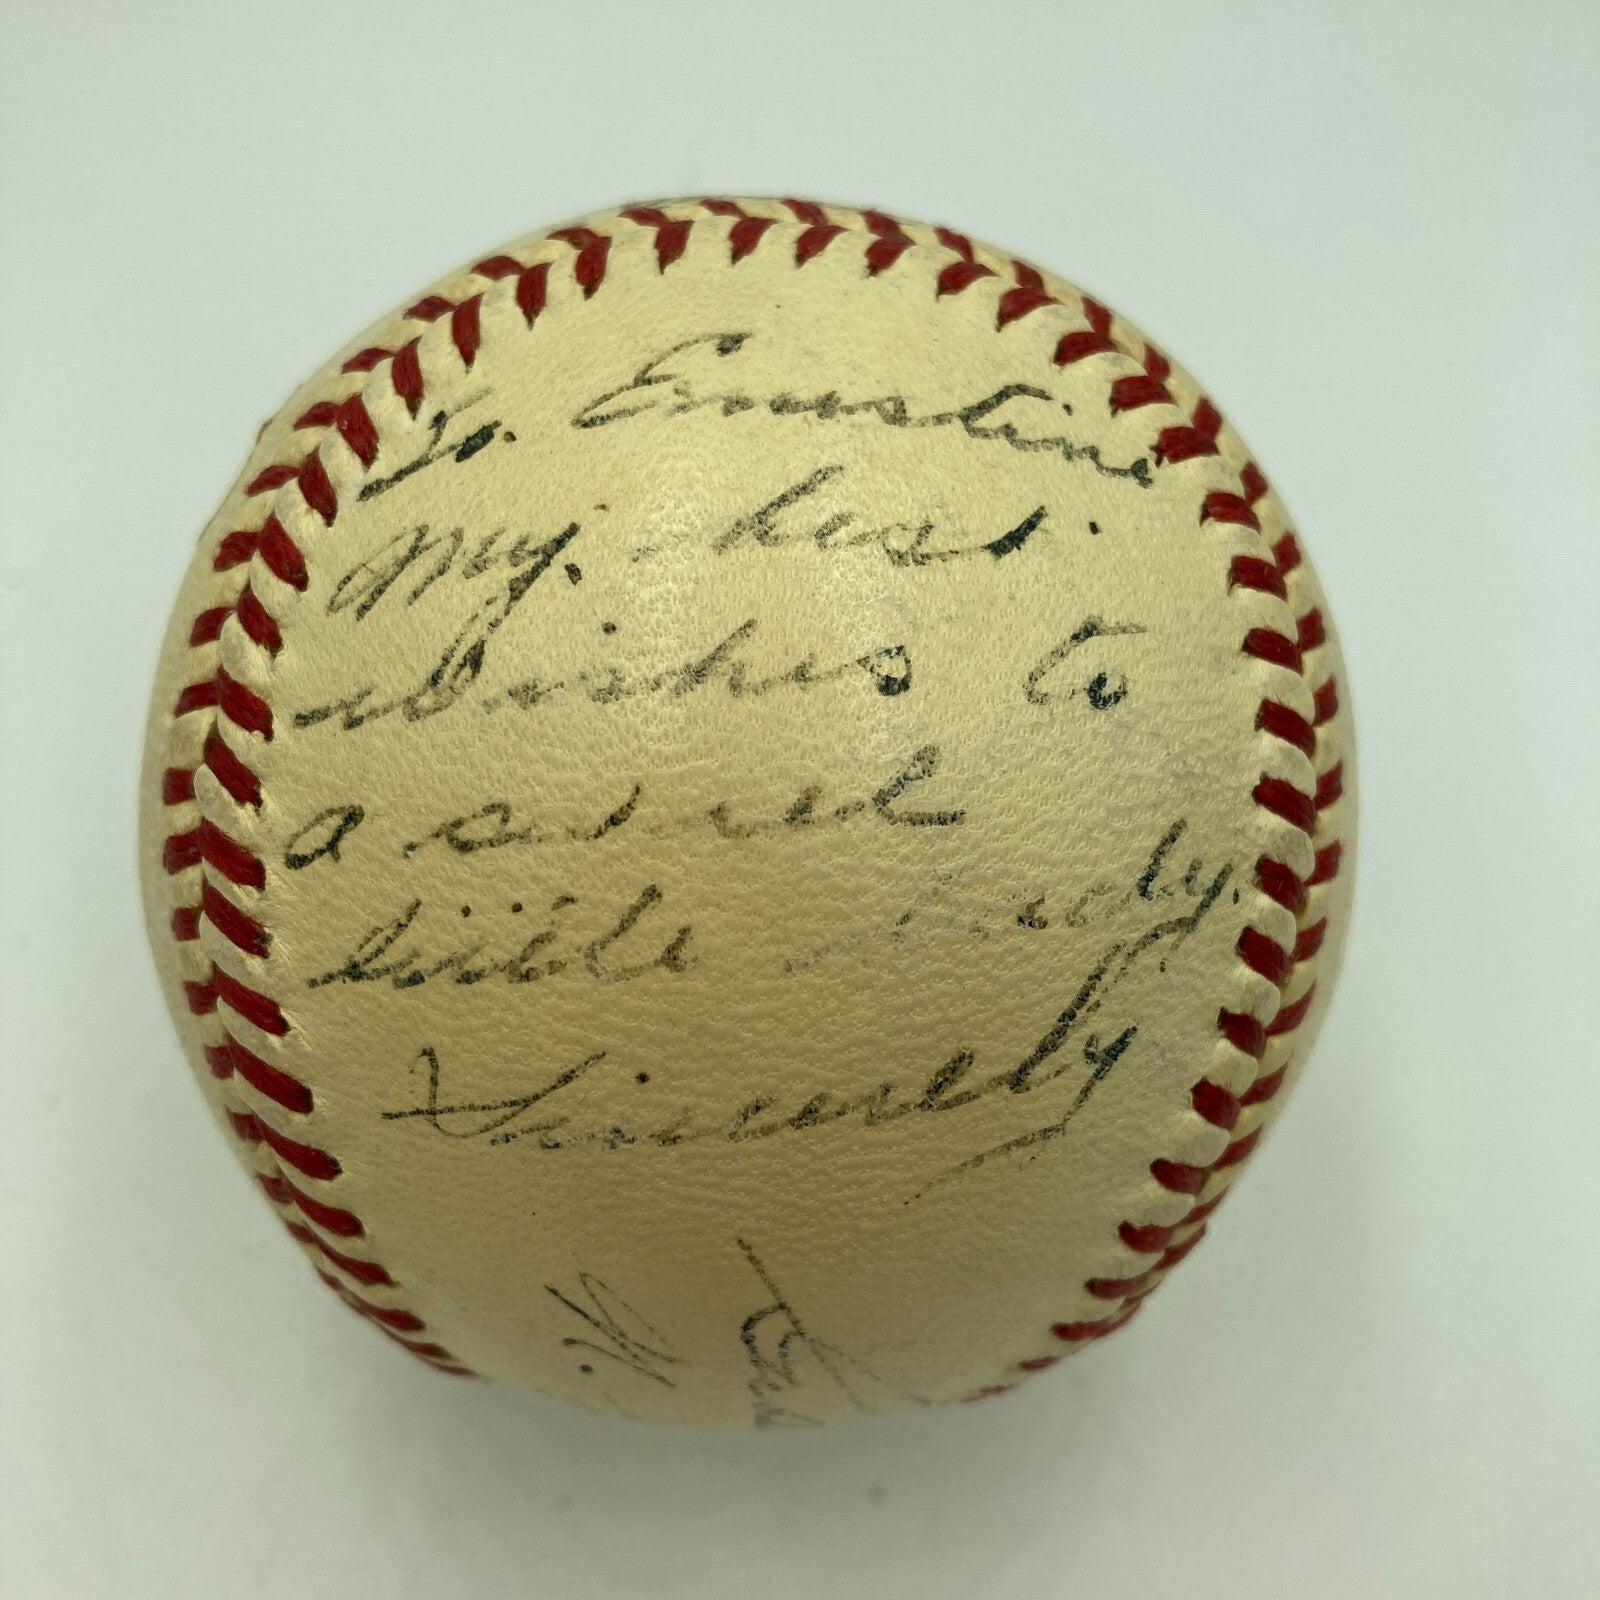 To. Ernestine
My. best
wishes to
a sweet
little Lady.
Sincerely